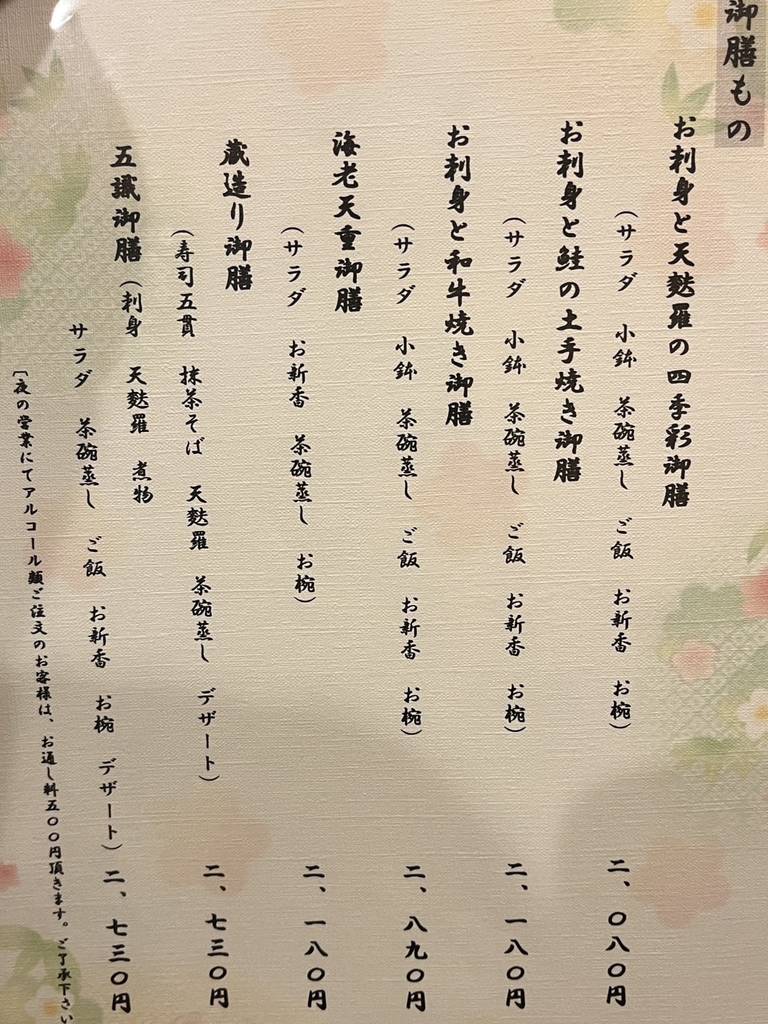 御膳もの
お刺身と天麩羅の四季彩御膳
（サラダ 小鉢 茶碗蒸し ご飯 お新香 お椀） 二、〇八〇円
お刺身と鮭の土手焼き御膳
（サラダ 小鉢 茶碗蒸し ご飯 お新香 お椀） 二、一八〇円
お刺身と和牛焼き御膳
（サラダ 小鉢 茶碗蒸し ご飯 お新香 お椀） 二、八九〇円
海老天重御膳
（サラダ お新香 茶碗蒸し お椀） 二、一八〇円
蔵造り御膳
（寿司五貫 抹茶そば 天麩羅 茶碗蒸し デザート） 二、七三〇円
五識御膳（刺身 天麩羅 煮物
サラダ 茶碗蒸し ご飯 お新香 お椀 デザート） 二、七三〇円
〔夜の営業にてアルコール類ご注文のお客様は、お通し料五〇〇円頂きます。ご了承下さい